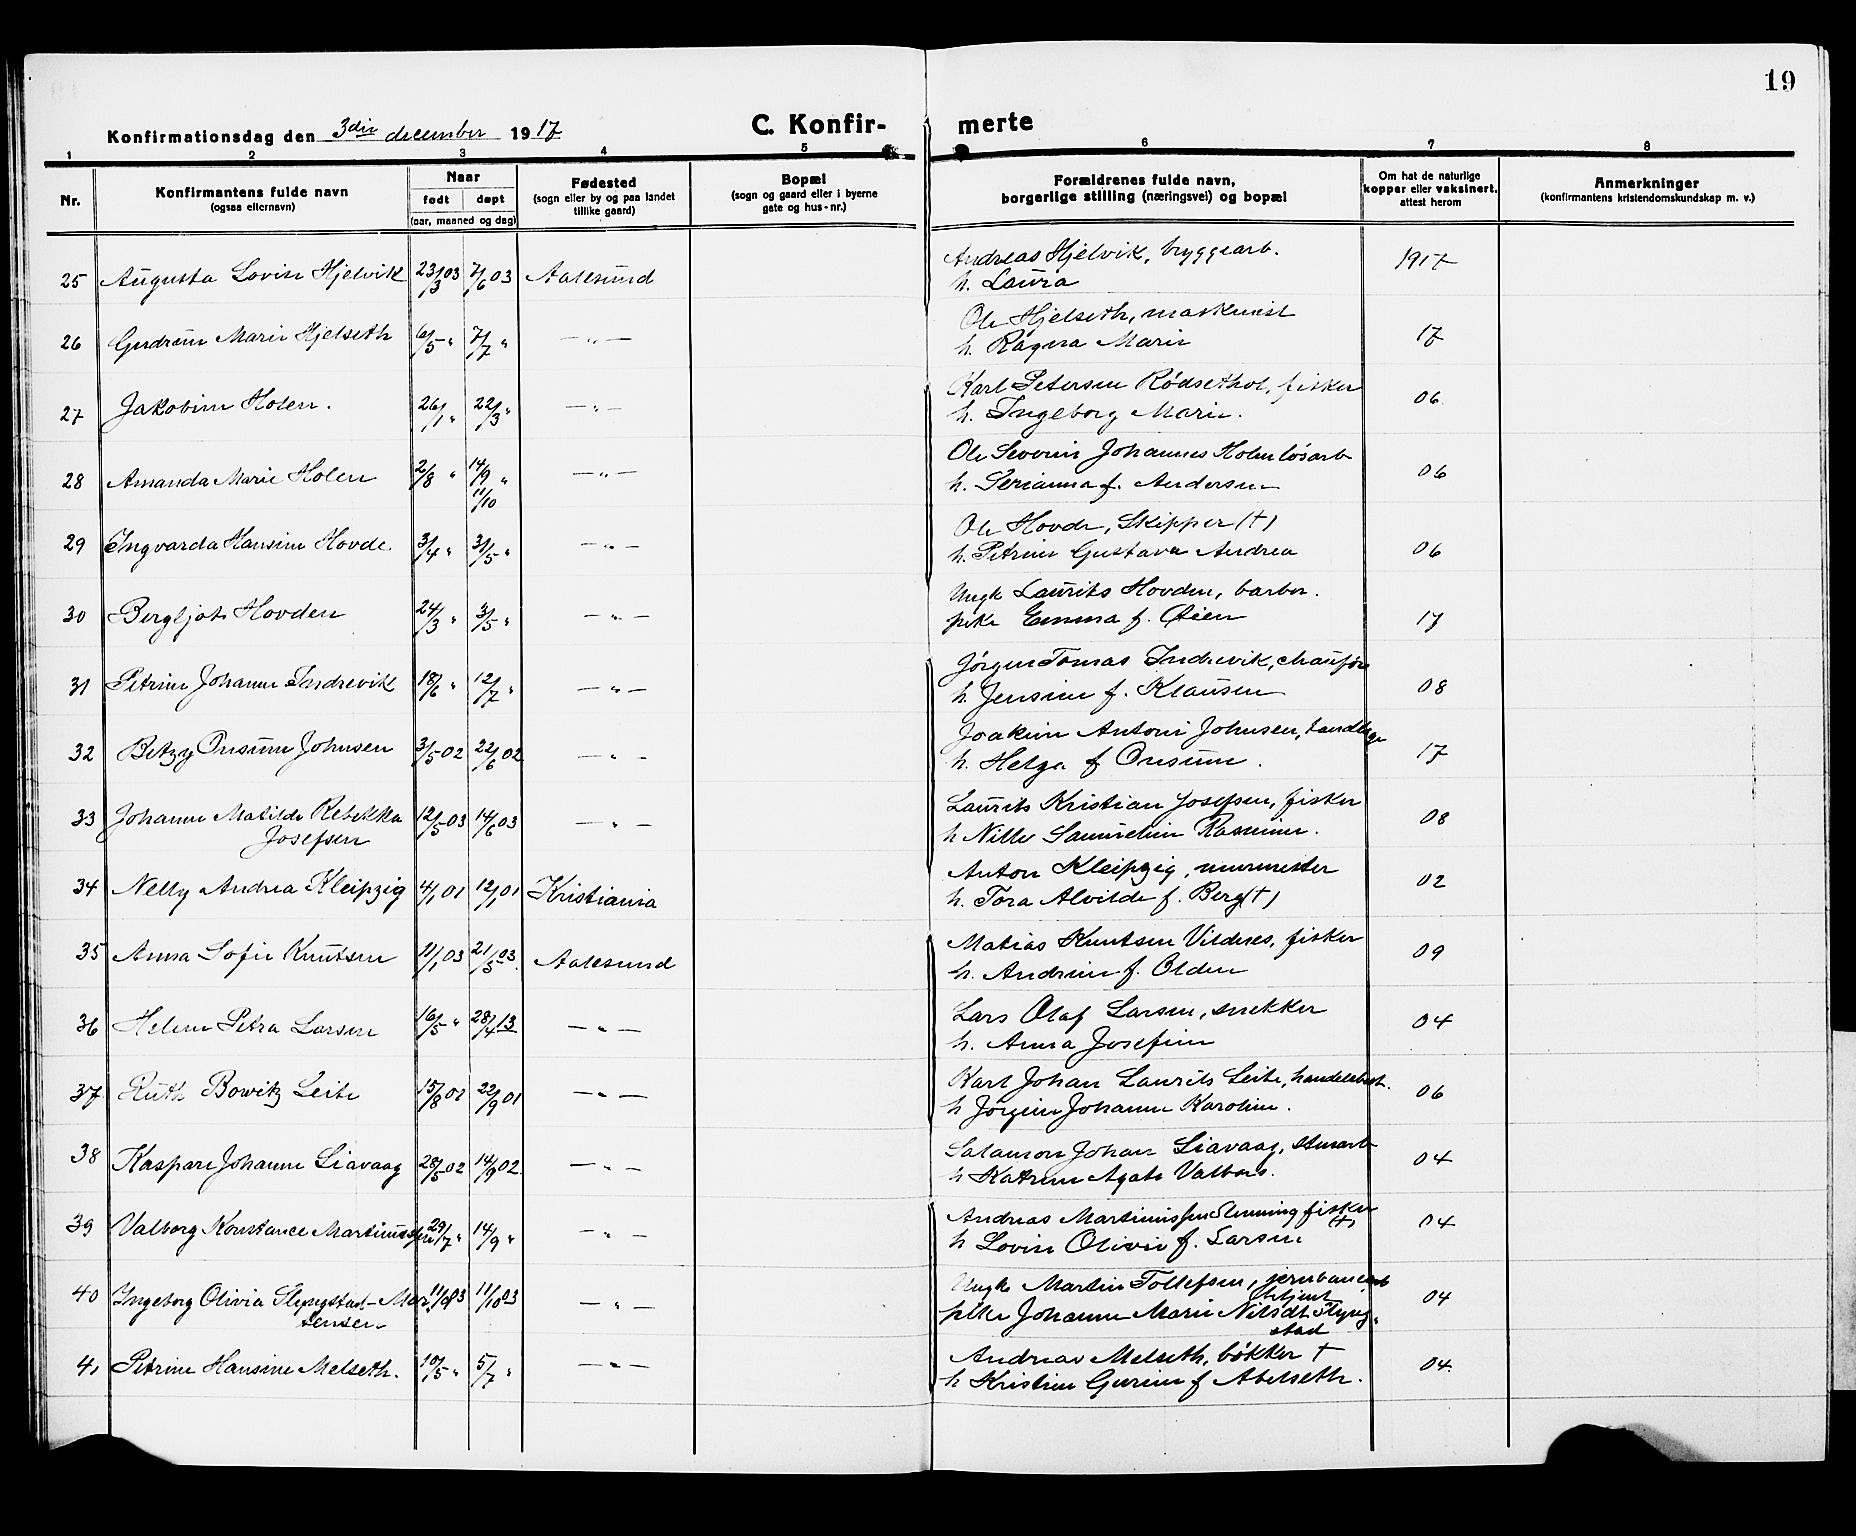 19
Konfirmationsdag den 3die december 1917
C. Konfir- merte
1 2 3 4 5 6 7 8
Nr.
Konfirmantens fulde navn
(ogsaa efternavn)
Naar
født døpt
(aar, maaned og dag)
Fødested
(sogn eller by og paa landet
tillike gaard)
Bopæl
(sogn og gaard eller i byerne
gate og hus-nr.)
Forældrenes fulde navn,
borgerlige stilling (næringsvei) og bopæl
Om hat de naturlige
kopper eller vaksinert.
attest herom
Anmerkninger
(konfirmantens kristendomskundskap m. v.)
25 Augusta Lovise Hjelvik 23/3 03 7/6 03 Aalesund
Andreas Hjelvik, bryggearb. 1917
h. Laura
26 Gudrun Marie Hjelseth 6/5 " 7/7 " — " —
Ole Hjelseth, maskinist 17
h. Ragna Marie
27 Jakobine Holen. 26/1 " 22/3 " — " —
Karl Petersen Rødsethol, fisker 06
h. Ingeborg Marie.
28 Amanda Marie Holen 2/8 " 14/9 " — " —
11/10
Ole Severin Johannes Holm løsarb 06
h. Serianna f. Andersen
29 Ingvarda Hansine Hovde. 3/4 " 31/5 " — " —
Ole Hovde, Skipper (†)
h. Petrine Gustava Andrea 06
30 Bergljot Hovden 24/3 " 3/5 " — " —
Ungk Laurits Hovden, barber.
pike Emma f. Øien 17
31 Petrine Johanne Indrevik 18/6 " 12/7 " — " —
Jørgen Tomas Indrevik, chauffør
h. Jensine f. Klausen 08
32 Betzy Onsum Johnsen 3/5 02 22/6 02 — " —
Joakim Antoni Johnsen, tandlæge
h. Helga f Onsum. 17
33 Johanne Matilde Rebekka 12/5 03 14/6 03 — " —
Josefsen
Laurits Kristian Josefsen, fisker 08
h Nille Samueline Rasmine.
34 Nelly Andrea Kleipzig 4/1 01 12/1 01 Kristiania
Anton Kleipzig, murmester 02
h. Tora Alvilde f. Berg (†)
35 Anna Sofie Knutsen 11/1 03 21/5 03. Aalesund
Matias Knutsen Vildnes, fisker 09
h. Andrine f. Olden
36 Helene Petra Larsen 16/5 " 28/4 13 — " —
Lars Olaf Larsen, snekker 04
h. Anna Josefine
37 Ruth Bowitz Leite 15/8 01 22/9 01 — " —
Karl Johan Laurits Leite, handelsbest. 06
h Jørgine Johanne Karoline.
38 Kaspare Johanne Liavaag 28/5 02 14/9 02. — " —
Salamon Johan Liavaag, stenarb 04
h Katrine Agate
39 Valborg Konstance Martinussen 29/7 " 14/9 " — " —
Andreas Martinussen fisker 04
(†)
h Lovise Olivie f. Larsen
40 Ingeborg Olivia Slyngstad-Mortensen 11/8 03 11/10 03 — " —
Ungk Martin Tollefsen, jernbane
betjent 04
pike Johanne Marie Nilsdt Slyngstad
41 Petrine Hansine Melseth. 10/5 " 5/7 " — " —
Andreas Melseth, bøkker † 04.
h Kristine Gurine f Abelseth.